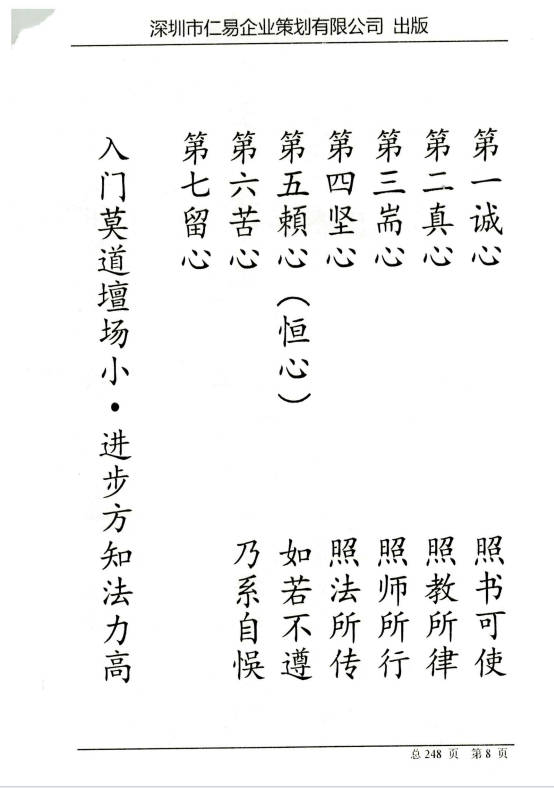 深圳市仁易企业策划有限公司 出版
第一诚心 照书可使
第二真心 照教所律
第三耑心 照师所行
第四坚心 照法所传
第五頼心（恒心） 如若不遵
第六苦心 乃系自悮
第七留心
入门莫道壇场小·进步方知法力高
总 248 页 第 8 页